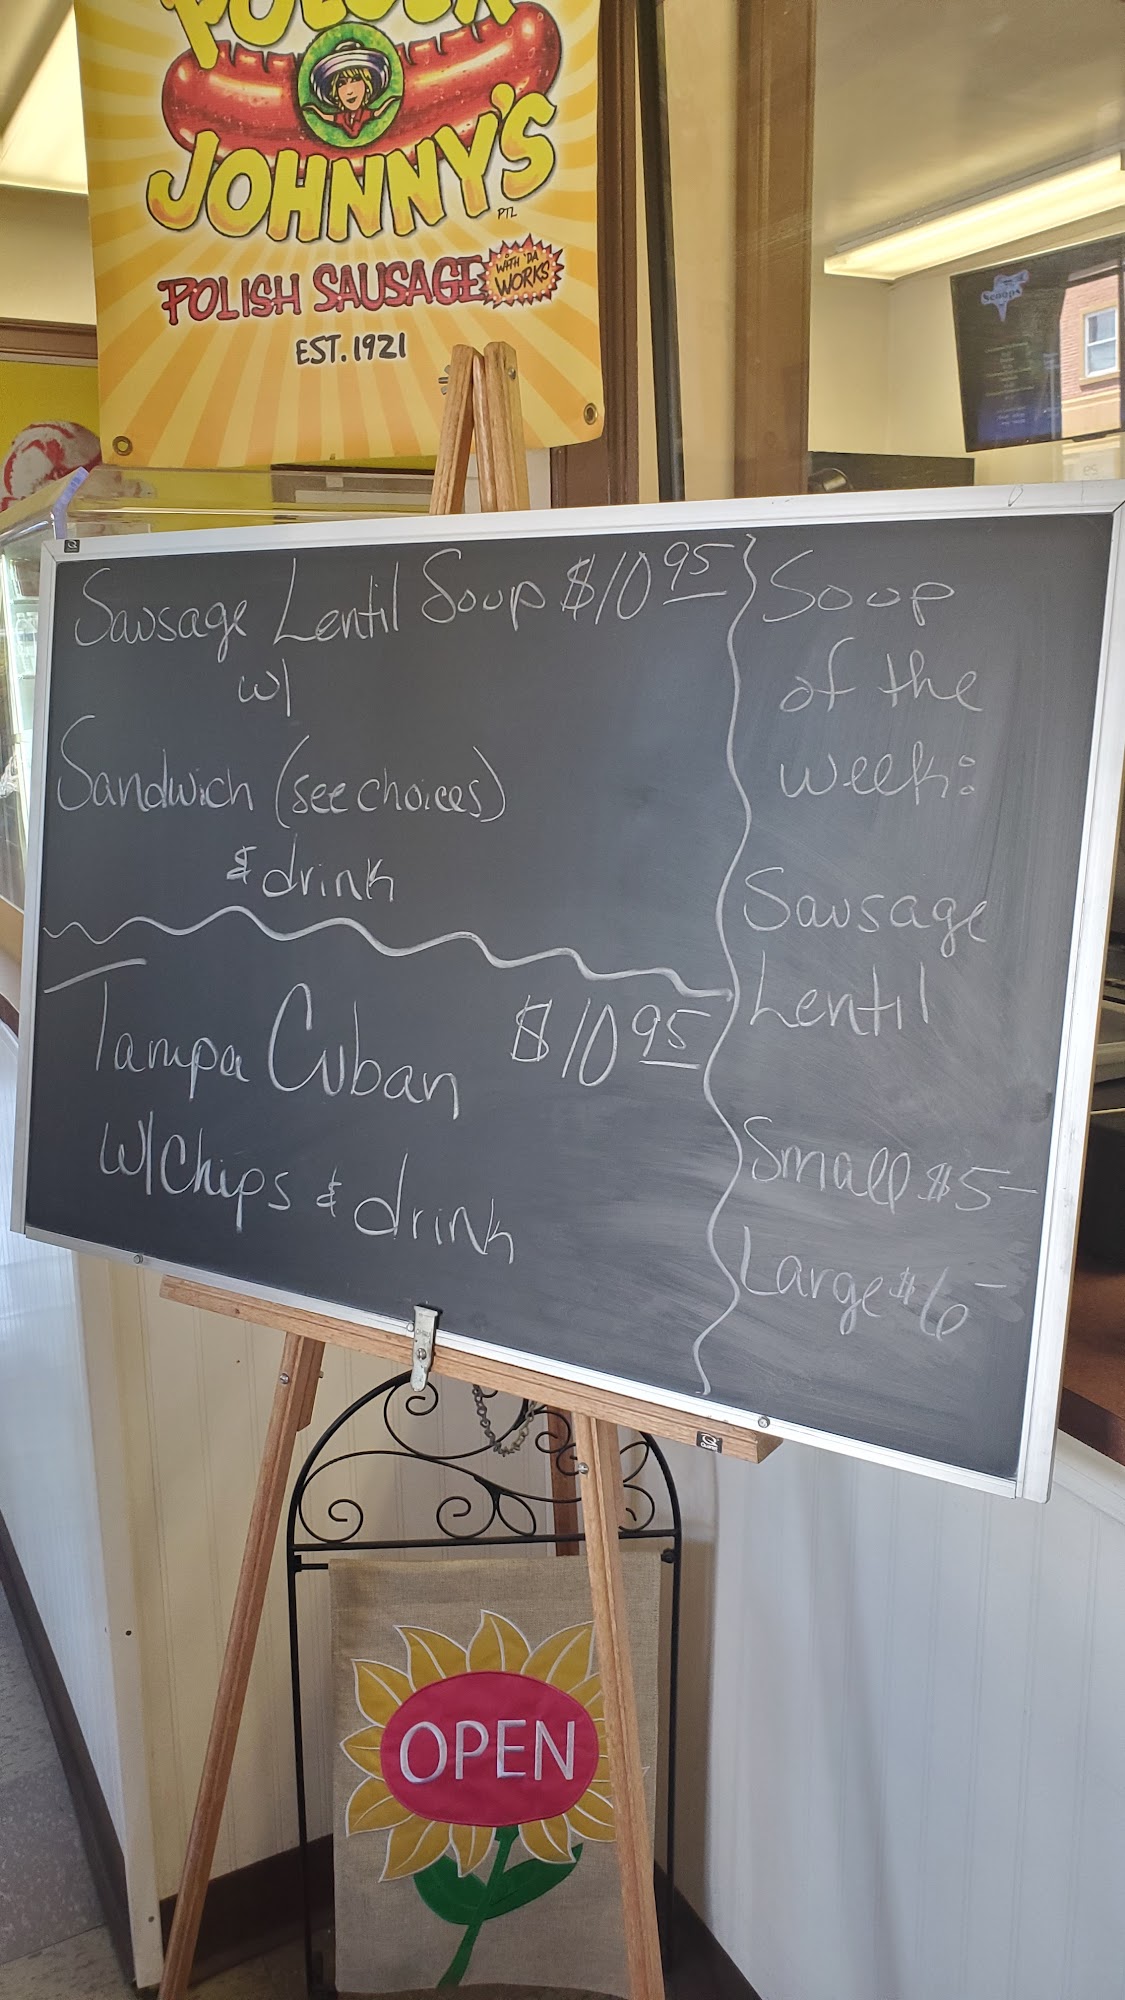 JOHNNY'S
PTL
POLISH SAUSAGE
WITH 'DA
WORKS
EST. 1921
Scoops
Sausage Lentil Soup $10 95
w/
Sandwich (see choices)
& drink
Tampa Cuban $10 95
w/Chips & drink
Soup
of the
week:
Sausage
Lentil
Small $5-
Large $6-
OPEN